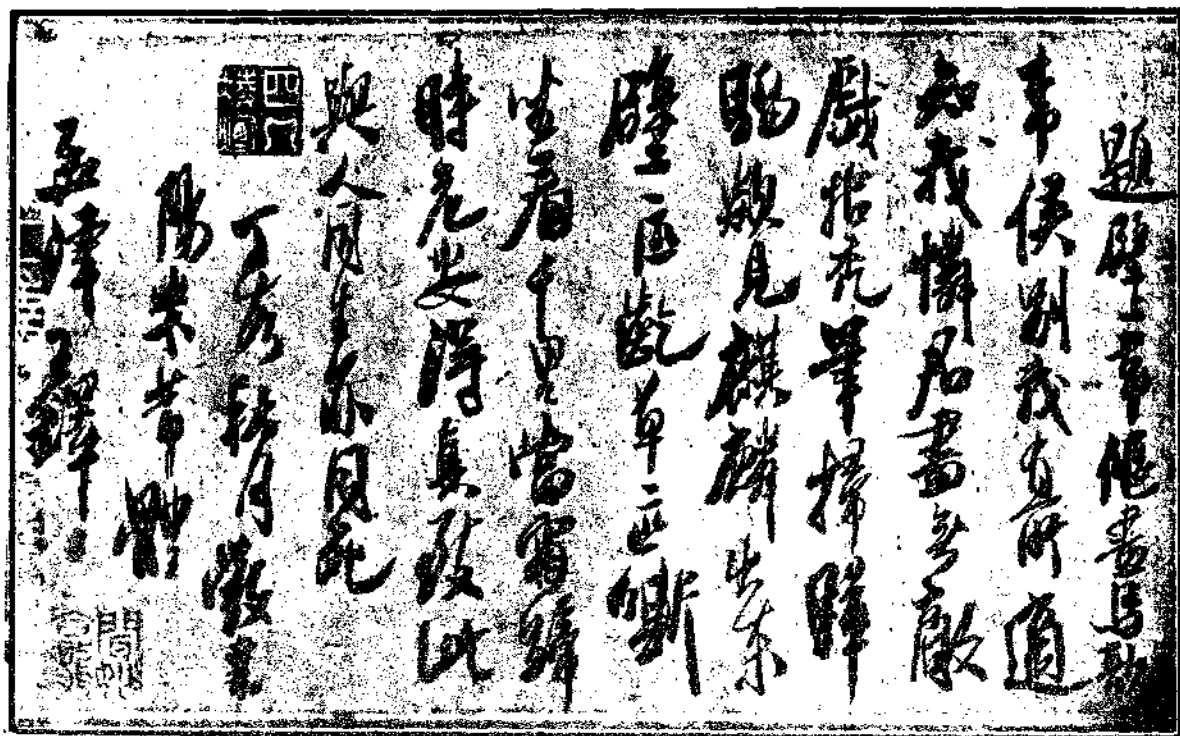 題壁上韋偃畫馬歌
韋侯別我有所適
知我憐君畫無敵
戲拈禿筆掃驊
騮欻見麒麟出東
壁一匹齕草一匹嘶
坐看千里當霜蹄
時危安得真致此
與人同生亦同死
丁亥月襄
陽米芾體
孟津王鐸